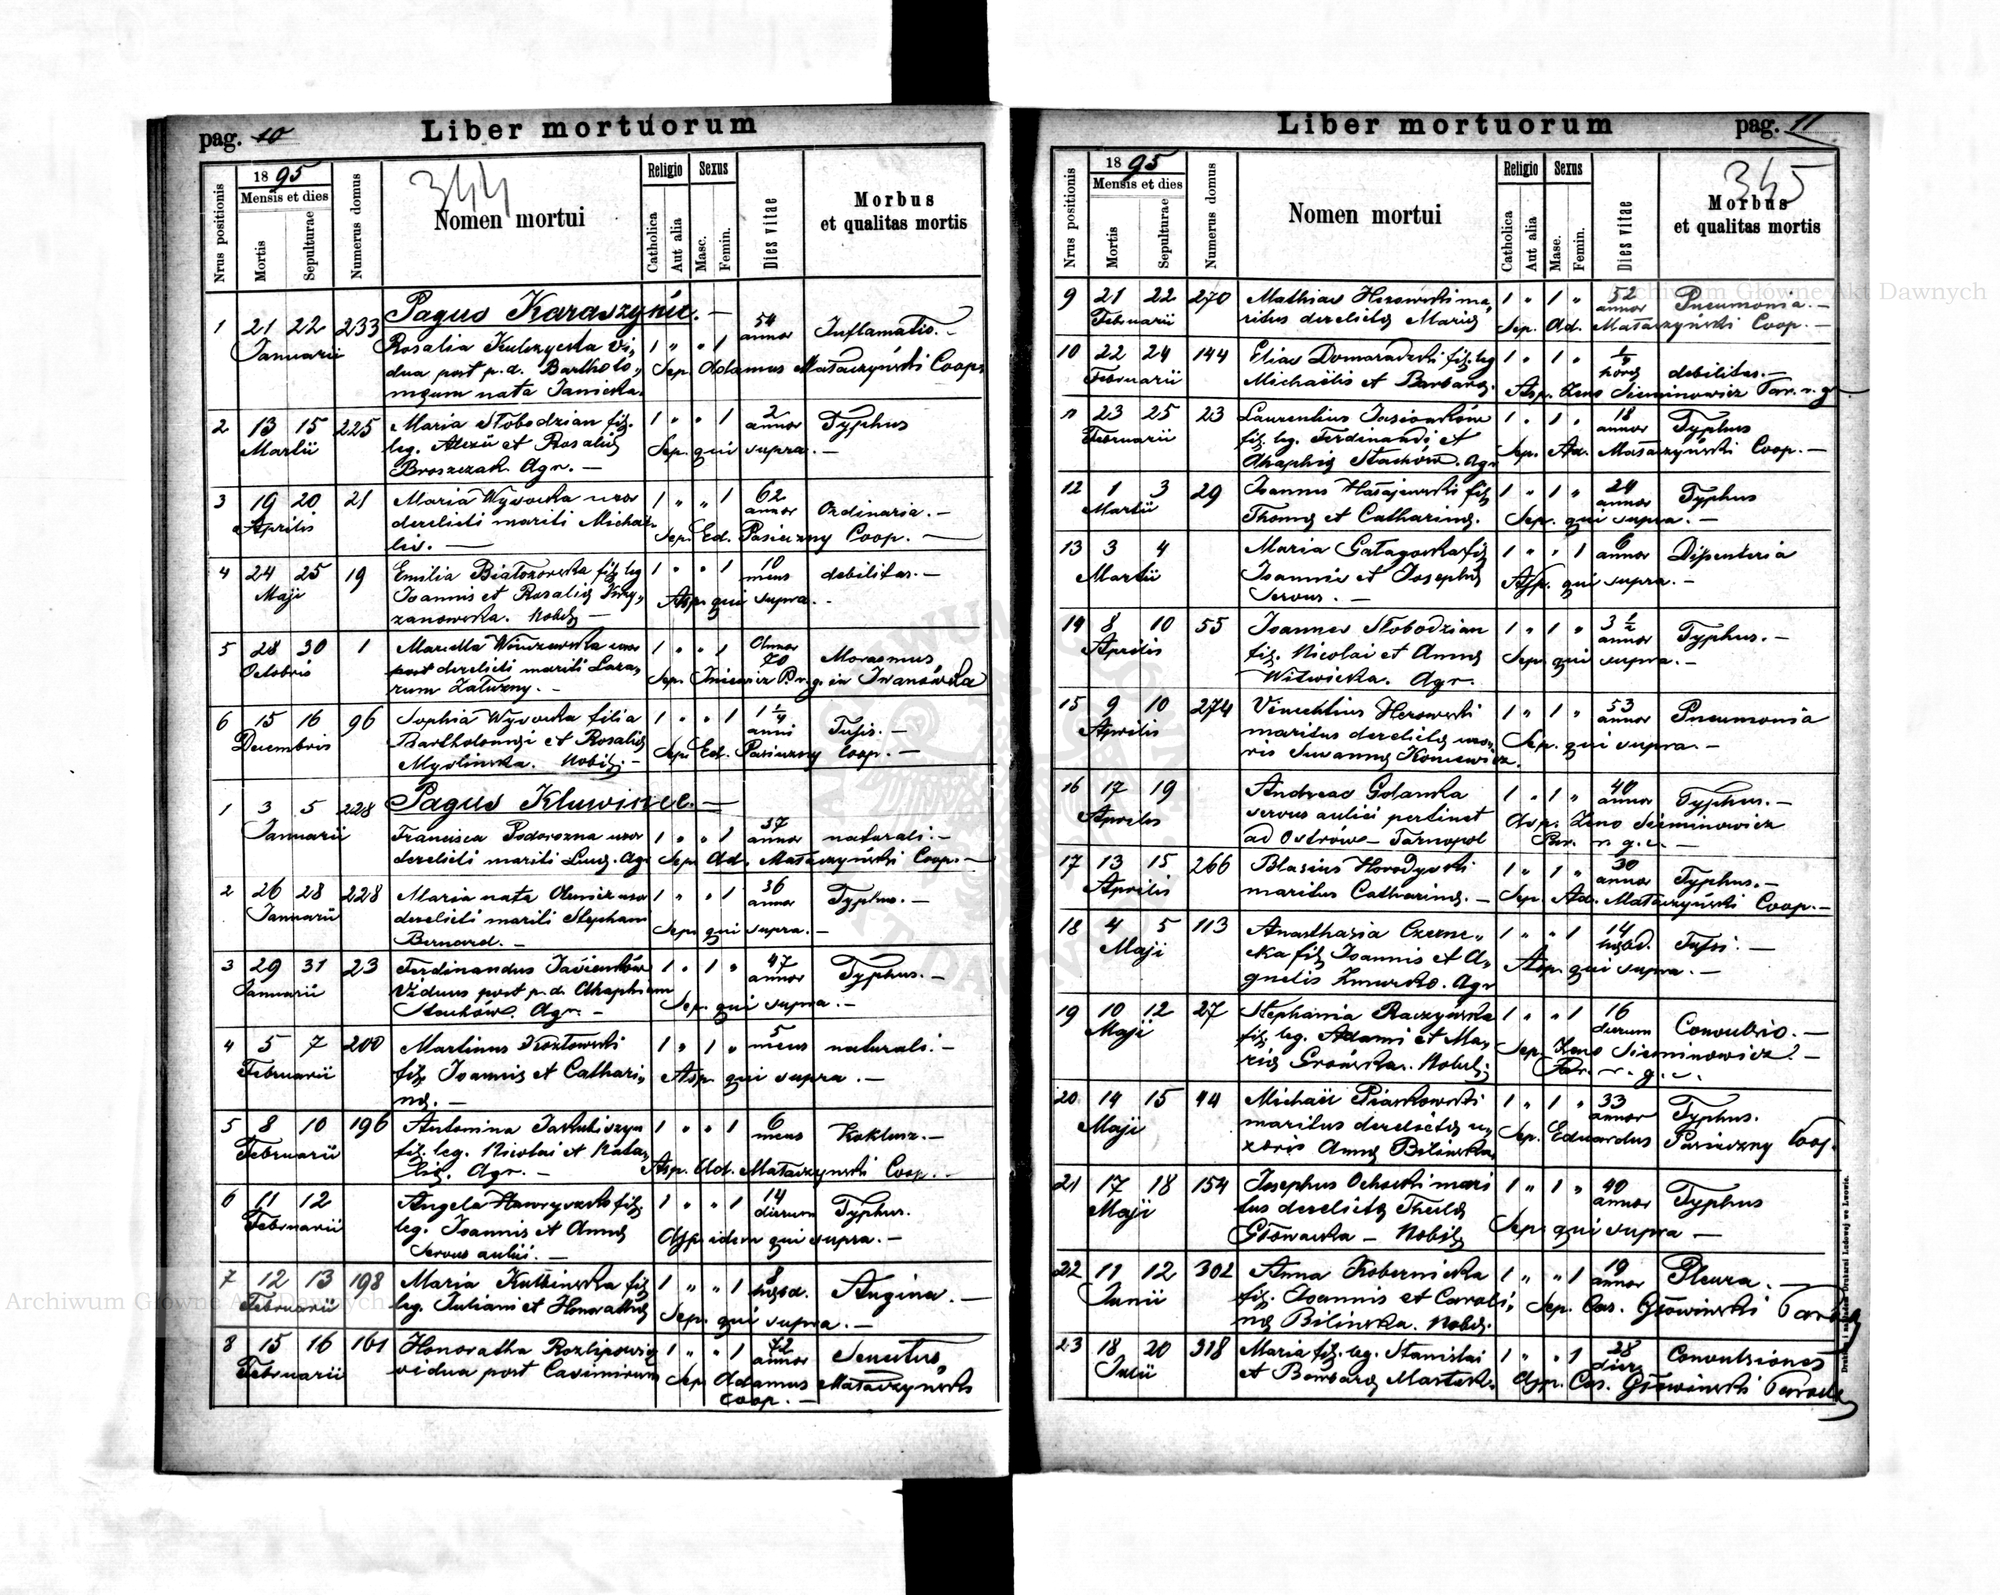 pag. 10
Liber mortuorum
344
Nrus positionis
1895
Mensis et dies
Mortis
Sepulturae
Numerus domus
Nomen mortui
Religio
Catholica
Aut alia
Sexus
Masc.
Femin.
Dies vitae
Morbus
et qualitas mortis
Pagus Karaszyńce.
1 21 22 233 54
Januarii annor Inflamatio.
Rosalia Kulczycka vi„ 1 " " 1
dua post p. d. Bartholo„ Sep. Adamus Mataczyński Coop.
meum nata Janicka.
2 13 15 225 Maria Słobodzian fil. 1 " " 1 2 annor Typhus
Martii leg. Alexii et Rosaliæ Sep. qui supra.
Broszczak. Agr.
3 19 20 21 Maria Wysocka uxor 1 " " 1 62 annor Ordinaria.
Aprilis derelicti mariti Michae„ Sep. Ed. Pasieczny Coop.
lis.
4 24 25 19 Emilia Białozorska fil. leg 1 " " 1 10 mens debilitas.
Maji Joannis et Rosaliæ Krzy„ Asp. qui supra.
zanowska. Nobil.
5 28 30 1 uxor 1 " " 1 Annor 70 Morasmus
Octobris post derelicti mariti Laza„ Sep. P. r. g. in Iwanówka
rum Załuzny.
6 15 16 96 Sophia Wysocka filia 1 " " 1 1 1/4 anni Tusis.
Decembris Bartholomæi et Rosaliæ Sep. Ed. Pasieczny Coop.
Myslinska. Nobil.
Pagus Kluwince.
1 3 5 228
Januarii Francisca Podorozna uxor 1 " " 1 37 annor naturali.
derelicti mariti Agr Sep. Ad. Mataczyński Coop.
2 26 28 228 Maria nata uxor 1 " " 1 36 annor Typhus.
Januarii derelicti mariti Stephani Sep. qui supra.
Bernard.
3 29 31 23 Ferdinandus 1 " 1 " 47 annor Typhus.
Januarii viduus post p. d. Ahaphiam Sep. qui supra.
Stachów. Agr.
4 5 7 200 Martinus Kozłowski 1 " 1 " 5 mens naturali.
Februarii fil. Joannis et Cathari„ Asp. qui supra.
næ.
5 8 10 196 Antonina Jakubiszyn 1 " " 1 6 mens Koklusz.
Februarii fil. leg. Nicolai et Nata„ Asp. Ad. Mataczyński Coop.
liæ. Agr.
6 11 12 Angela fil. 1 " " 1 14 dierum Typhus.
Februarii leg. Joannis et Annæ App. idem qui supra.
Servus aulici.
7 12 13 198 Maria fil 1 " " 1 8 hebd. Angina.
Februarii leg. Juliani et Honorathæ Sep. qui supra.
8 15 16 161 Honoratha 1 " " 1 72 annor Senectus
Februarii vidua post Casimirum Sep. Adamus Mataczyński
Coop.
Liber mortuorum
pag. 11
345
Nrus positionis
1895
Mensis et dies
Mortis
Sepulturae
Numerus domus
Nomen mortui
Religio
Catholica
Aut alia
Sexus
Masc.
Femin.
Dies vitae
Morbus
et qualitas mortis
9 21 22 270 Mathias Herowski ma„ 1 " 1 " 52 annor Pneumonia.
Februarii ritus derelictæ Mariæ Sep. Ad. Mataczyński Coop.
10 22 24 144 Elias Domaradzki fil. leg 1 " 1 " 1/2 horæ debilitas.
Februarii Michaëlis et Barbaræ. Asp. Zeno Sieminowicz Par. r. g.
11 23 25 23 Laurentius 1 " 1 " 18 annor Typhus
Februarii fil. leg. Ferdinandi et Sep. Ad. Mataczyński Coop.
Ahaphiæ Stachów. Agr
12 1 3 29 Joannes fil 1 " 1 " 24 annor Typhus
Martii Thomæ et Catharinæ. Sep. qui supra.
13 3 4 Maria fil 1 " " 1 6 annor Disenteria
Martii Joannis et Josephæ App. qui supra.
Servus.
14 8 10 55 Joannes Słobodzian 1 " 1 " 3 1/2 annor Typhus.
Aprilis fil. Nicolai et Annæ Sep. qui supra.
Witwicka. Agr.
15 9 10 274 Vincentius Herowski 1 " 1 " 53 annor Pneumonia
Aprilis maritus derelictæ uxo„ Sep. qui supra.
ris Susannæ Koniewicz.
16 17 19 Andreas Golanka 1 " 1 " 40 annor Typhus.
Aprilis servus aulici pertinet Asp. Zeno Sieminowicz
ad Ostrów – Tarnopol Par. r. g.
17 13 15 266 Blasius Horodyski 1 " 1 " 30 annor Typhus.
Aprilis maritus Catharinæ. Sep. Ad. Mataczyński Coop.
18 4 5 113 Anasthasia Czerne„ 1 " " 1 14 hebd. Tussi.
Maji cka fil. Joannis et A„ Asp. qui supra.
gnetis Agr
19 10 12 27 Stephania Raczyńska 1 " " 1 16 dierum Convulsio.
Maji fil. leg. Adami et Ma„ Sep. Zeno Sieminowicz
riæ Nobil. Par. r. g.
20 14 15 44 Michaël Piaskowski 1 " 1 " 33 annor Typhus.
Maji maritus derelictæ u„ Sep. Eduardus Pasieczny Coop.
xoris Annæ Bilinska.
21 17 18 154 Josephus Ochocki mari 1 " 1 " 40 annor Typhus
Maji tus derelictæ Theklæ Sep. qui supra
Głowacka – Nobil.
22 11 12 302 Anna Kobernicka 1 " " 1 19 annor Pleura.
Junii fil. Joannis et Caroli„ Sep. Cas. Głowiński Paroch
næ Bilinska. Nobil.
23 18 20 318 Maria fil. leg. Stanislai 1 " " 1 28 dies Convulsiones
Julii et Barbaræ App. Cas. Głowiński Paroch
Drukiem i nakładem Drukarni Ludowej we Lwowie.
Archiwum Główne Akt Dawnych
Archiwum Główne Akt Dawnych